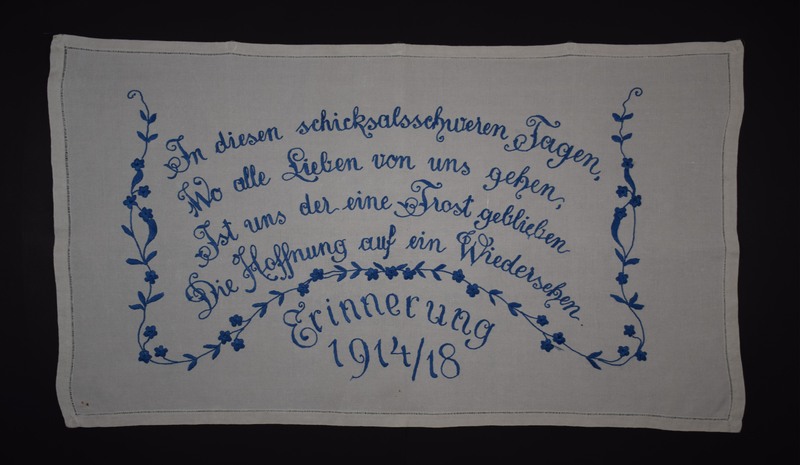 In diesen schicksalsschweren Tagen,
Wo alle Lieben von uns gehen,
Ist uns der eine Trost geblieben
Die Hoffnung auf ein Wiedersehen.
Erinnerung
1914/18